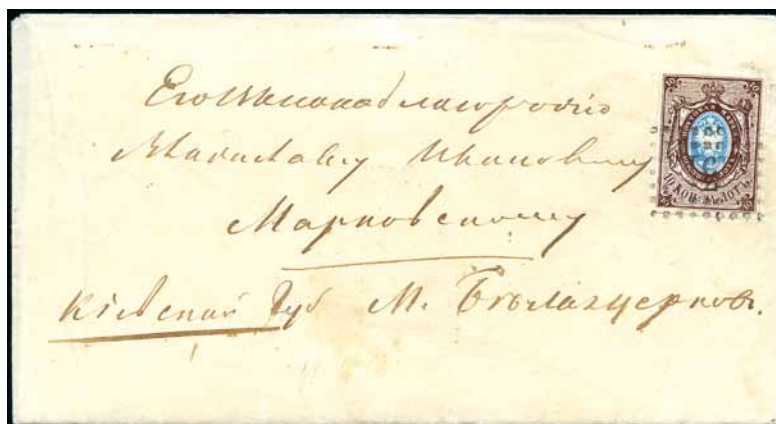 Его Высокоблагородію
Ивановичу
Марковскому
Кіевской Губ М. Бѣлаяцерковь.
10 КОП. ЗА ЛОТЪ